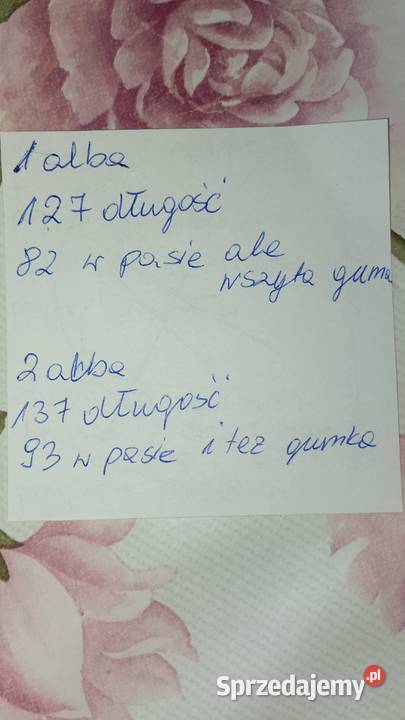 1 alba
127 długość
82 w pasie ale
wszyta guma
2 alba
137 długość
93 w pasie i też gumka
Sprzedajemy.pl